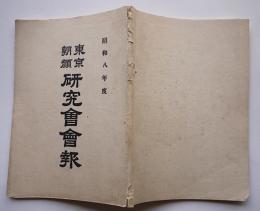 昭和八年度
東京朝顔研究會會報